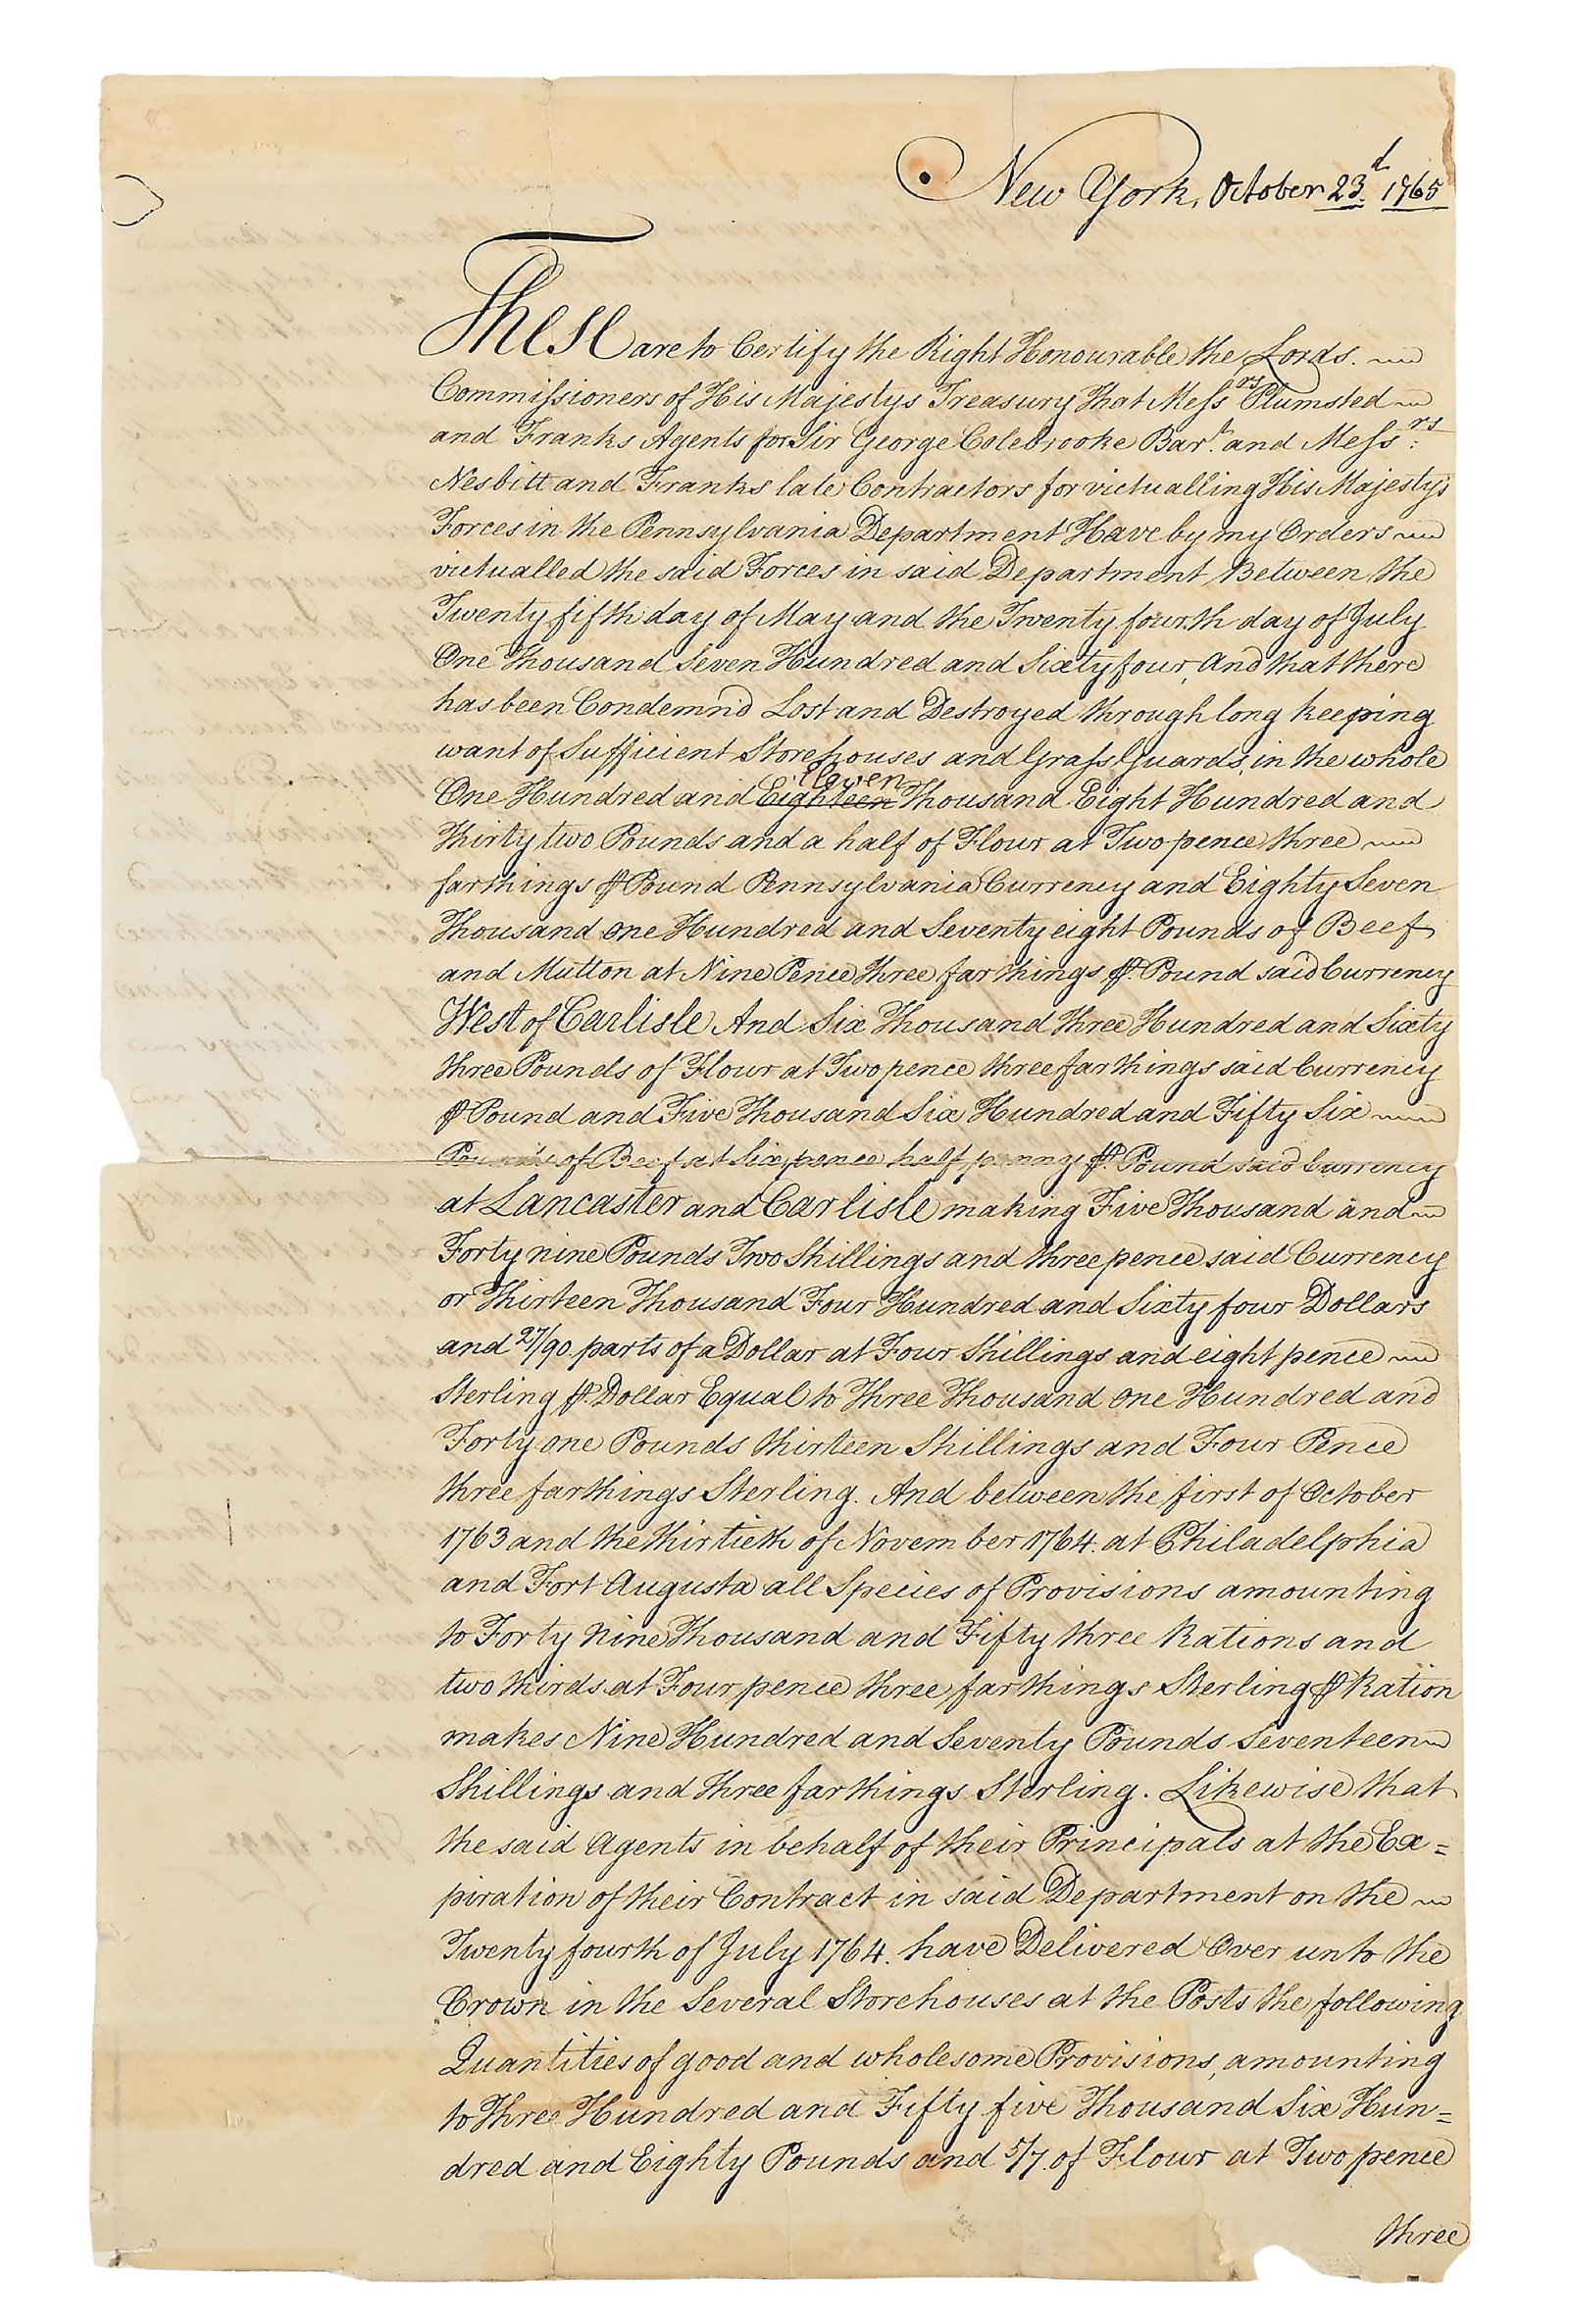 New York, October 23.d 1765
These are to Certify the Right Honourable the Lords.
Commissioners of His Majestys Treasury That Messrs Plumsted
and Franks Agents for Sir George Colebrooke Bart. and Messrs:
Nesbitt and Franks late Contractors for victualling His Majestys
Forces in the Pennsylvania Department Have by my Orders
victualled the said Forces in said Department Between the
Twenty fifth day of May and the Twenty fourth day of July
One Thousand Seven Hundred and Sixty four, And that there
has been Condemn'd Lost and Destroyed through long keeping
want of Sufficient Storehouses and Grass Guards, in the whole
Eleven
One Hundred and Eighteen Thousand Eight Hundred and
Thirty two Pounds and a half of Flour at Two pence three
farthings ⅌ Pound Pennsylvania Currency and Eighty Seven
Thousand One Hundred and Seventy eight Pounds of Beef
and Mutton at Nine Pence three farthings ⅌. Pound said Currency
West of Carlisle And Six Thousand Three Hundred and Sixty
three Pounds of Flour at Two pence three farthings said Currency
⅌ Pound and Five Thousand Six Hundred and Fifty Six
Pounds of Beef at Six pence half penny ⅌. Pound said Currency
at Lancaster and Carlisle making Five Thousand and
Forty nine Pounds Two Shillings and three pence said Currency
or Thirteen Thousand Four Hundred and Sixty four Dollars
and 27/90 parts of a Dollar at Four Shillings and eight pence
Sterling ⅌. Dollar Equal to Three Thousand One Hundred and
Forty one Pounds thirteen Shillings and Four Pence
three farthings Sterling. And between the first of October
1763 and the thirtieth of November 1764. at Philadelphia
and Fort Augusta all Species of Provisions amounting
to Forty Nine Thousand and Fifty three Rations and
two thirds at Four pence three farthings Sterling ⅌ Ration
makes Nine Hundred and Seventy Pounds Seventeen
Shillings and three farthings Sterling. Likewise that
the said Agents in behalf of their Principals at the Ex=
piration of their Contract in said Department on the
Twenty fourth of July 1764. have Delivered Over unto the
Crown in the Several Storehouses at the Posts the following
Quantities of good and wholesome Provisions, amounting
to Three Hundred and Fifty five Thousand Six Hun=
dred and Eighty Pounds and 5/7 of Flour at Two pence
three